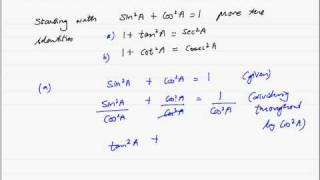 Starting with sin²A + cos²A = 1 prove the
identities a) 1 + tan²A = sec²A
b) 1 + cot²A = cosec²A
(a) sin²A + cos²A = 1 (given)
sin²A/cos²A + cos²A/cos²A = 1/cos²A (dividing
throughout
by cos²A)
tan²A +